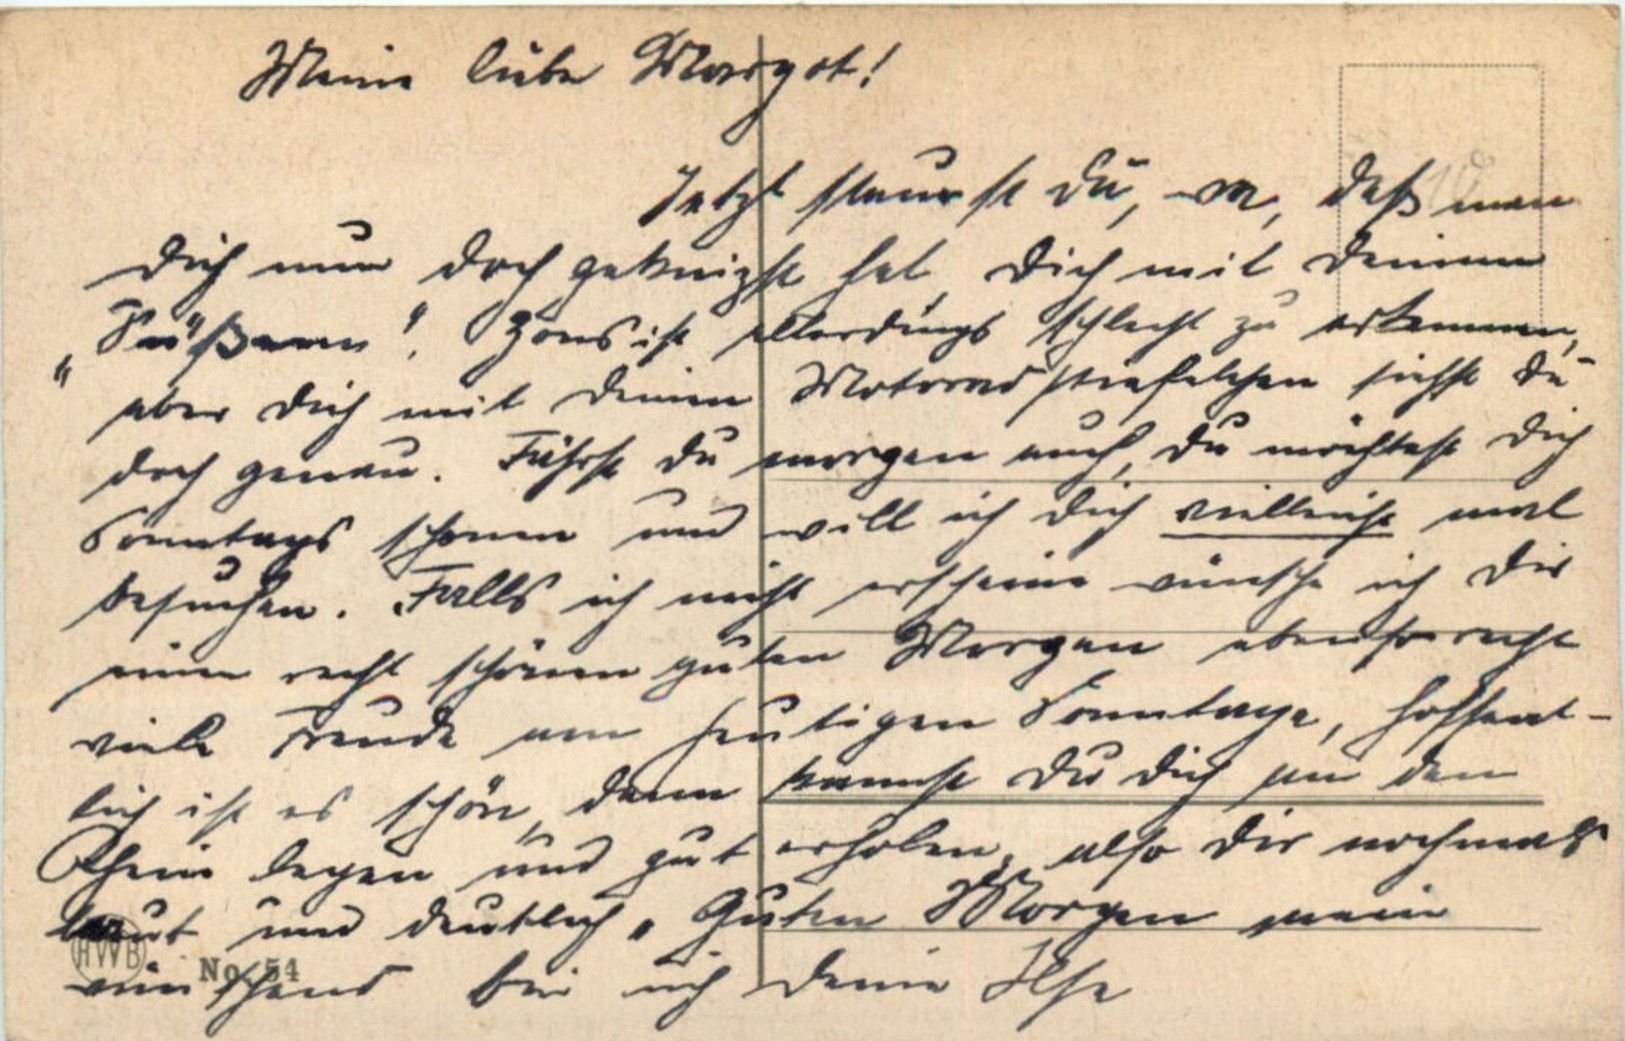 Meine liebe Margot!
Jetzt staunst Du, daß man
Dich nun doch geknipst hat, Dich mit Deinem
„Süßen“. Zons ist allerdings schlecht zu erkennen,
aber Dich mit Deinen siehst Du
doch genau. Fährst Du morgen auch, Du möchtest Dich
Sonntags schonen und will ich Dich vielleicht mal
besuchen. Falls ich nicht erscheine wünsche ich Dir
einen recht schönen guten Morgen ebenso recht
viele Freude am heutigen Sonntage, hoffent-
lich ist es schön, dann kannst Du Dich an den
Rhein legen und gut erholen, also Dir nochmals
laut und deutlich „Guten Morgen
wünschend bin ich Deine Ilse
HWB
No. 54